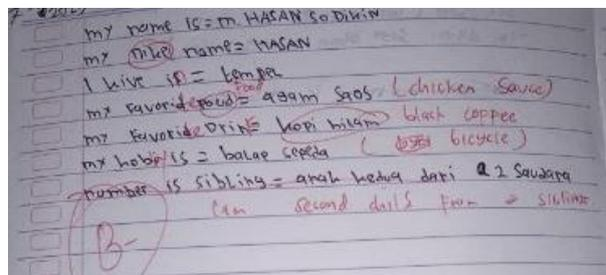 my name is = m HASAN SODIKIN
my nikel name = HASAN
I live is = tempel
food
my favoride = agam saos (chicken sauce)
my favoride Drink = kopi hitam black coppee
my hobi is = balap sepeda ( bicycle )
number is sibling = anak kedua dari 2 Saudara
I am second from 2 siblings
B-